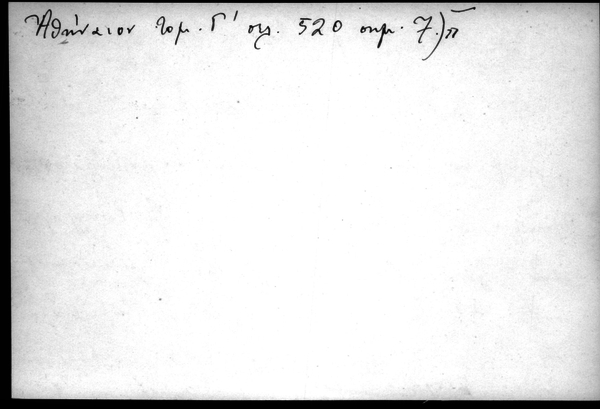 Ἀθήναιον τομ. Γ' σελ. 520 σημ. 7.)